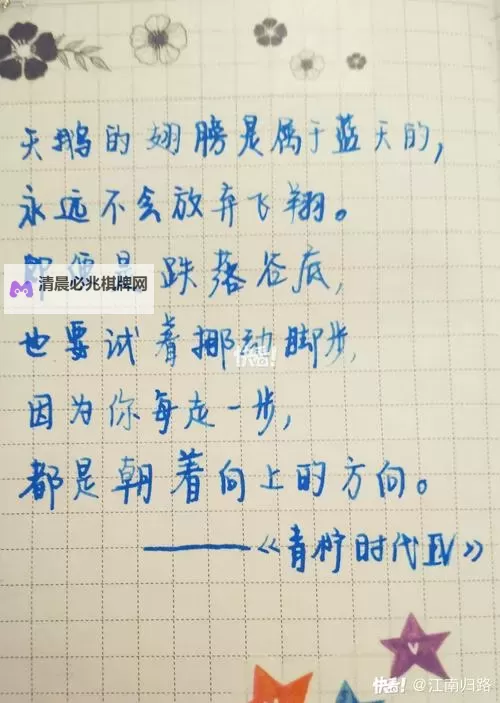 天鹅的翅膀是属于蓝天的，
永远不会放弃飞翔。
即便是跌落谷底，
清晨必兆棋牌网
也要试着挪动脚步，
快看!
因为你每走一步，
都是朝着向上的方向。
——《青柠时代Ⅳ》
快看! @江南归路